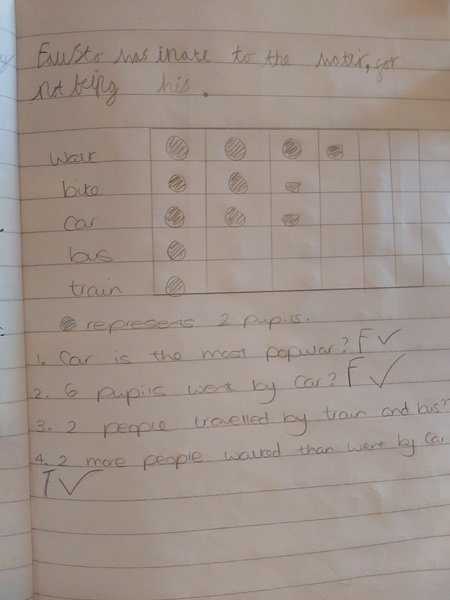 has to the for
not being his.
walk
bike
car
bus
train
represents 2 pupils.
1. Car is the most popular? F ✓
2. 6 pupils went by car? F ✓
3. 2 people travelled by train and bus?
4. 2 more people walked than went by car
T ✓